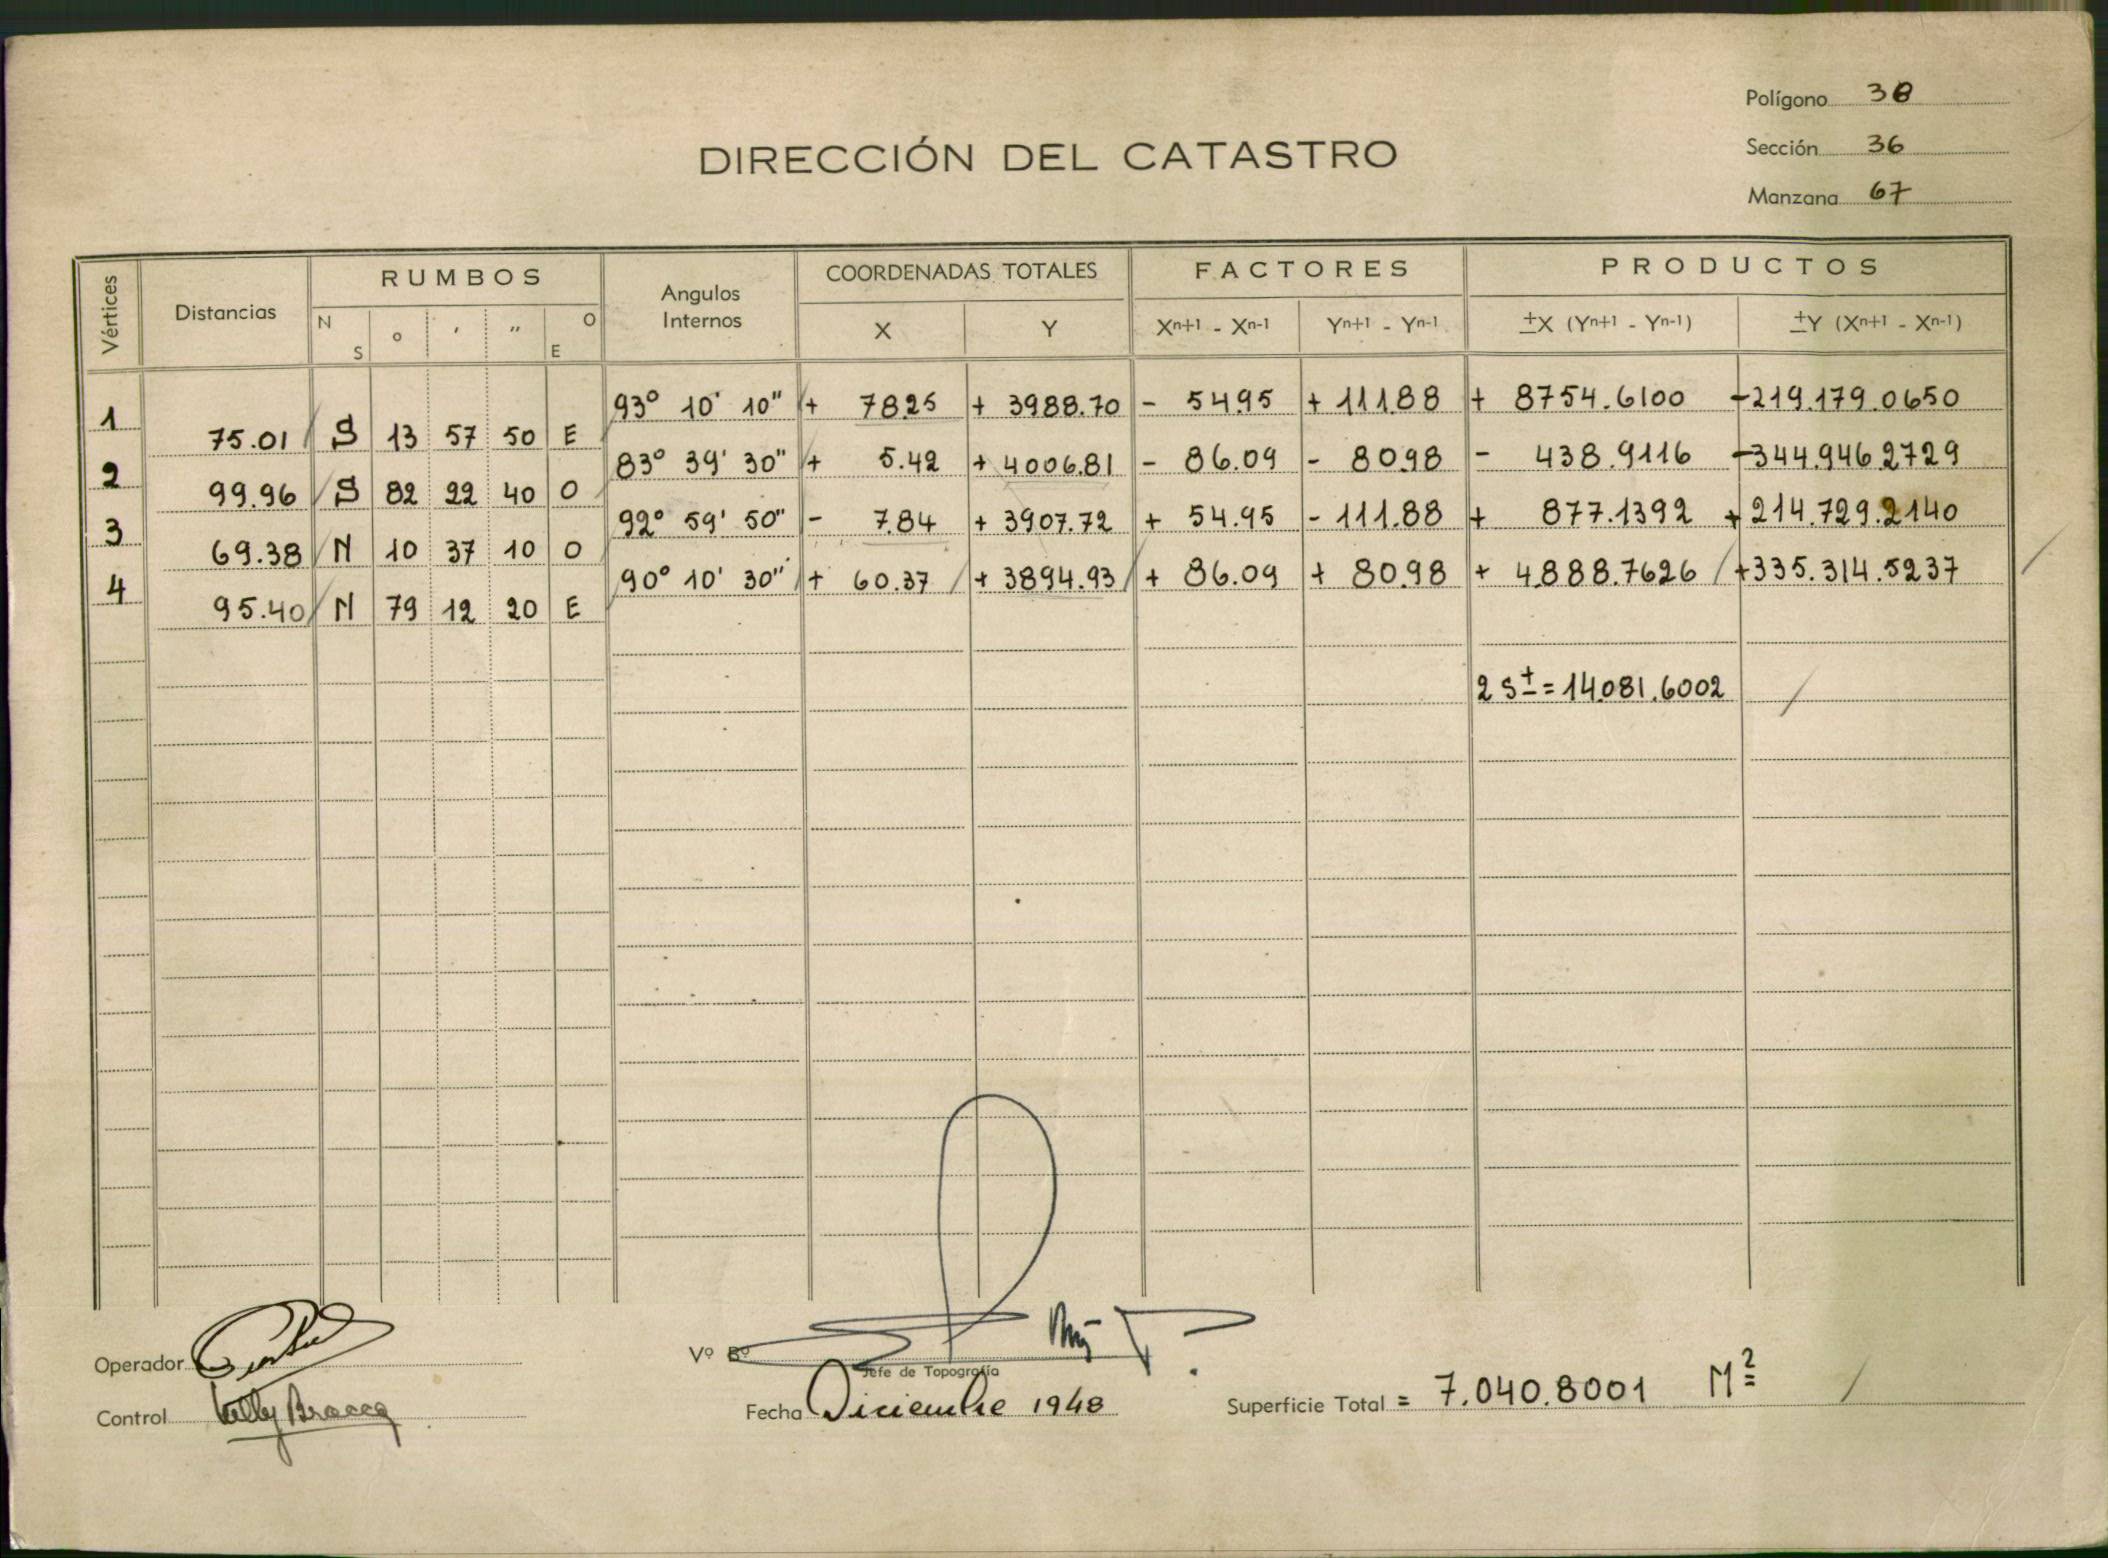 Polígono 38
DIRECCIÓN DEL CATASTRO
Sección 36
Manzana 67
Vértices Distancias RUMBOS Angulos Internos COORDENADAS TOTALES FACTORES PRODUCTOS
N S ° ' " O E X Y Xn+1 - Xn-1 Yn+1 - Yn-1 ±X (Yn+1 - Yn-1) ±Y (Xn+1 - Xn-1)
1 93° 10' 10" + 78.25 + 3988.70 - 54.95 + 111.88 + 8754.6100 -219.179.0650
75.01 S 13 57 50 E
2 83° 39' 30" + 5.42 + 4006.81 - 86.09 - 80.98 - 438.9116 -344.946.2729
99.96 S 82 22 40 O
3 92° 59' 50" - 7.84 + 3907.72 + 54.95 - 111.88 + 877.1392 + 214.729.2140
69.38 N 10 37 10 O
4 90° 10' 30" + 60.37 + 3894.93 + 86.09 + 80.98 + 4.888.7626 +335.314.5237
95.40 N 79 12 20 E
2 S ± = 14.081.6002
Operador
Vº Bº
Jefe de Topografía
Control
Fecha Diciembre 1948
Superficie Total = 7.040.8001 M²